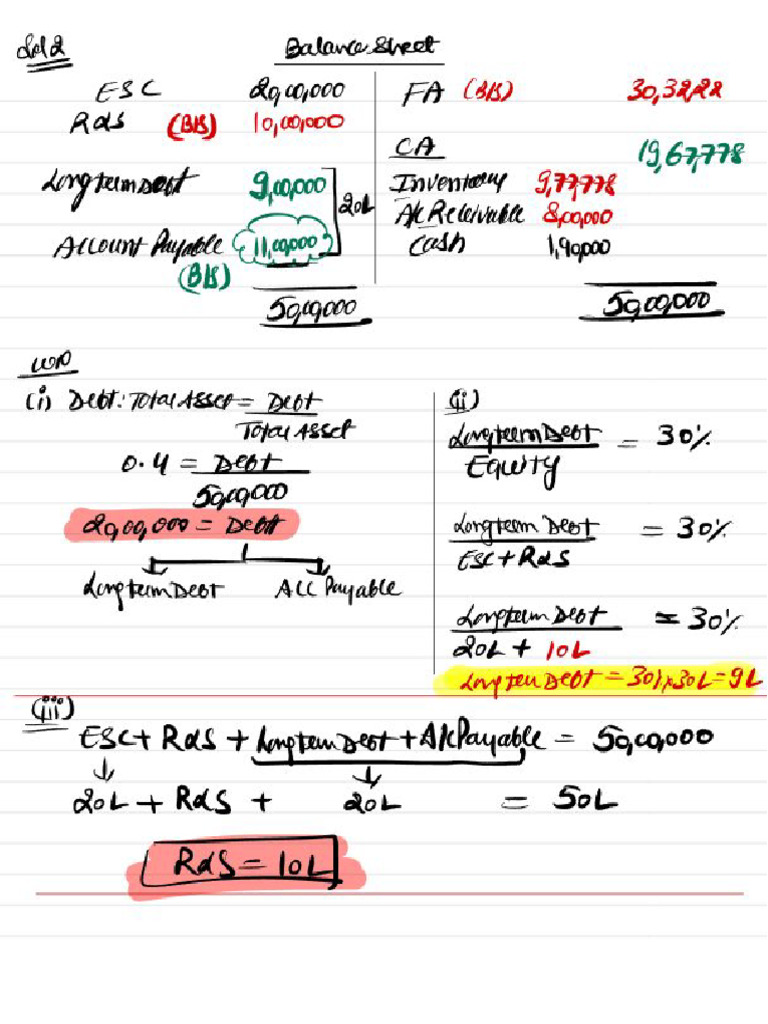 Sol 2
Balance Sheet
ESC 20,00,000
R&S (B/S) 10,00,000
Long term Debt 9,00,000
20L
Account Payable 11,00,000
(B/S)
50,00,000
FA (B/S) 30,32,222
CA 19,67,778
Inventory 9,77,778
A/c Receivable 8,00,000
Cash 1,90,000
50,00,000
WN
(i) Debt : Total Asset = Debt
Total Asset
0.4 = Debt
50,00,000
20,00,000 = Debt
Long term Debt Acc Payable
(ii)
Long term Debt = 30%
Equity
Long term Debt = 30%
ESC + R&S
Long term Debt = 30%
20L + 10L
Long term Debt = 30% x 30L = 9L
(iii)
ESC + R&S + Long term Debt + A/c Payable = 50,00,000
20L + R&S + 20L = 50L
R&S = 10L